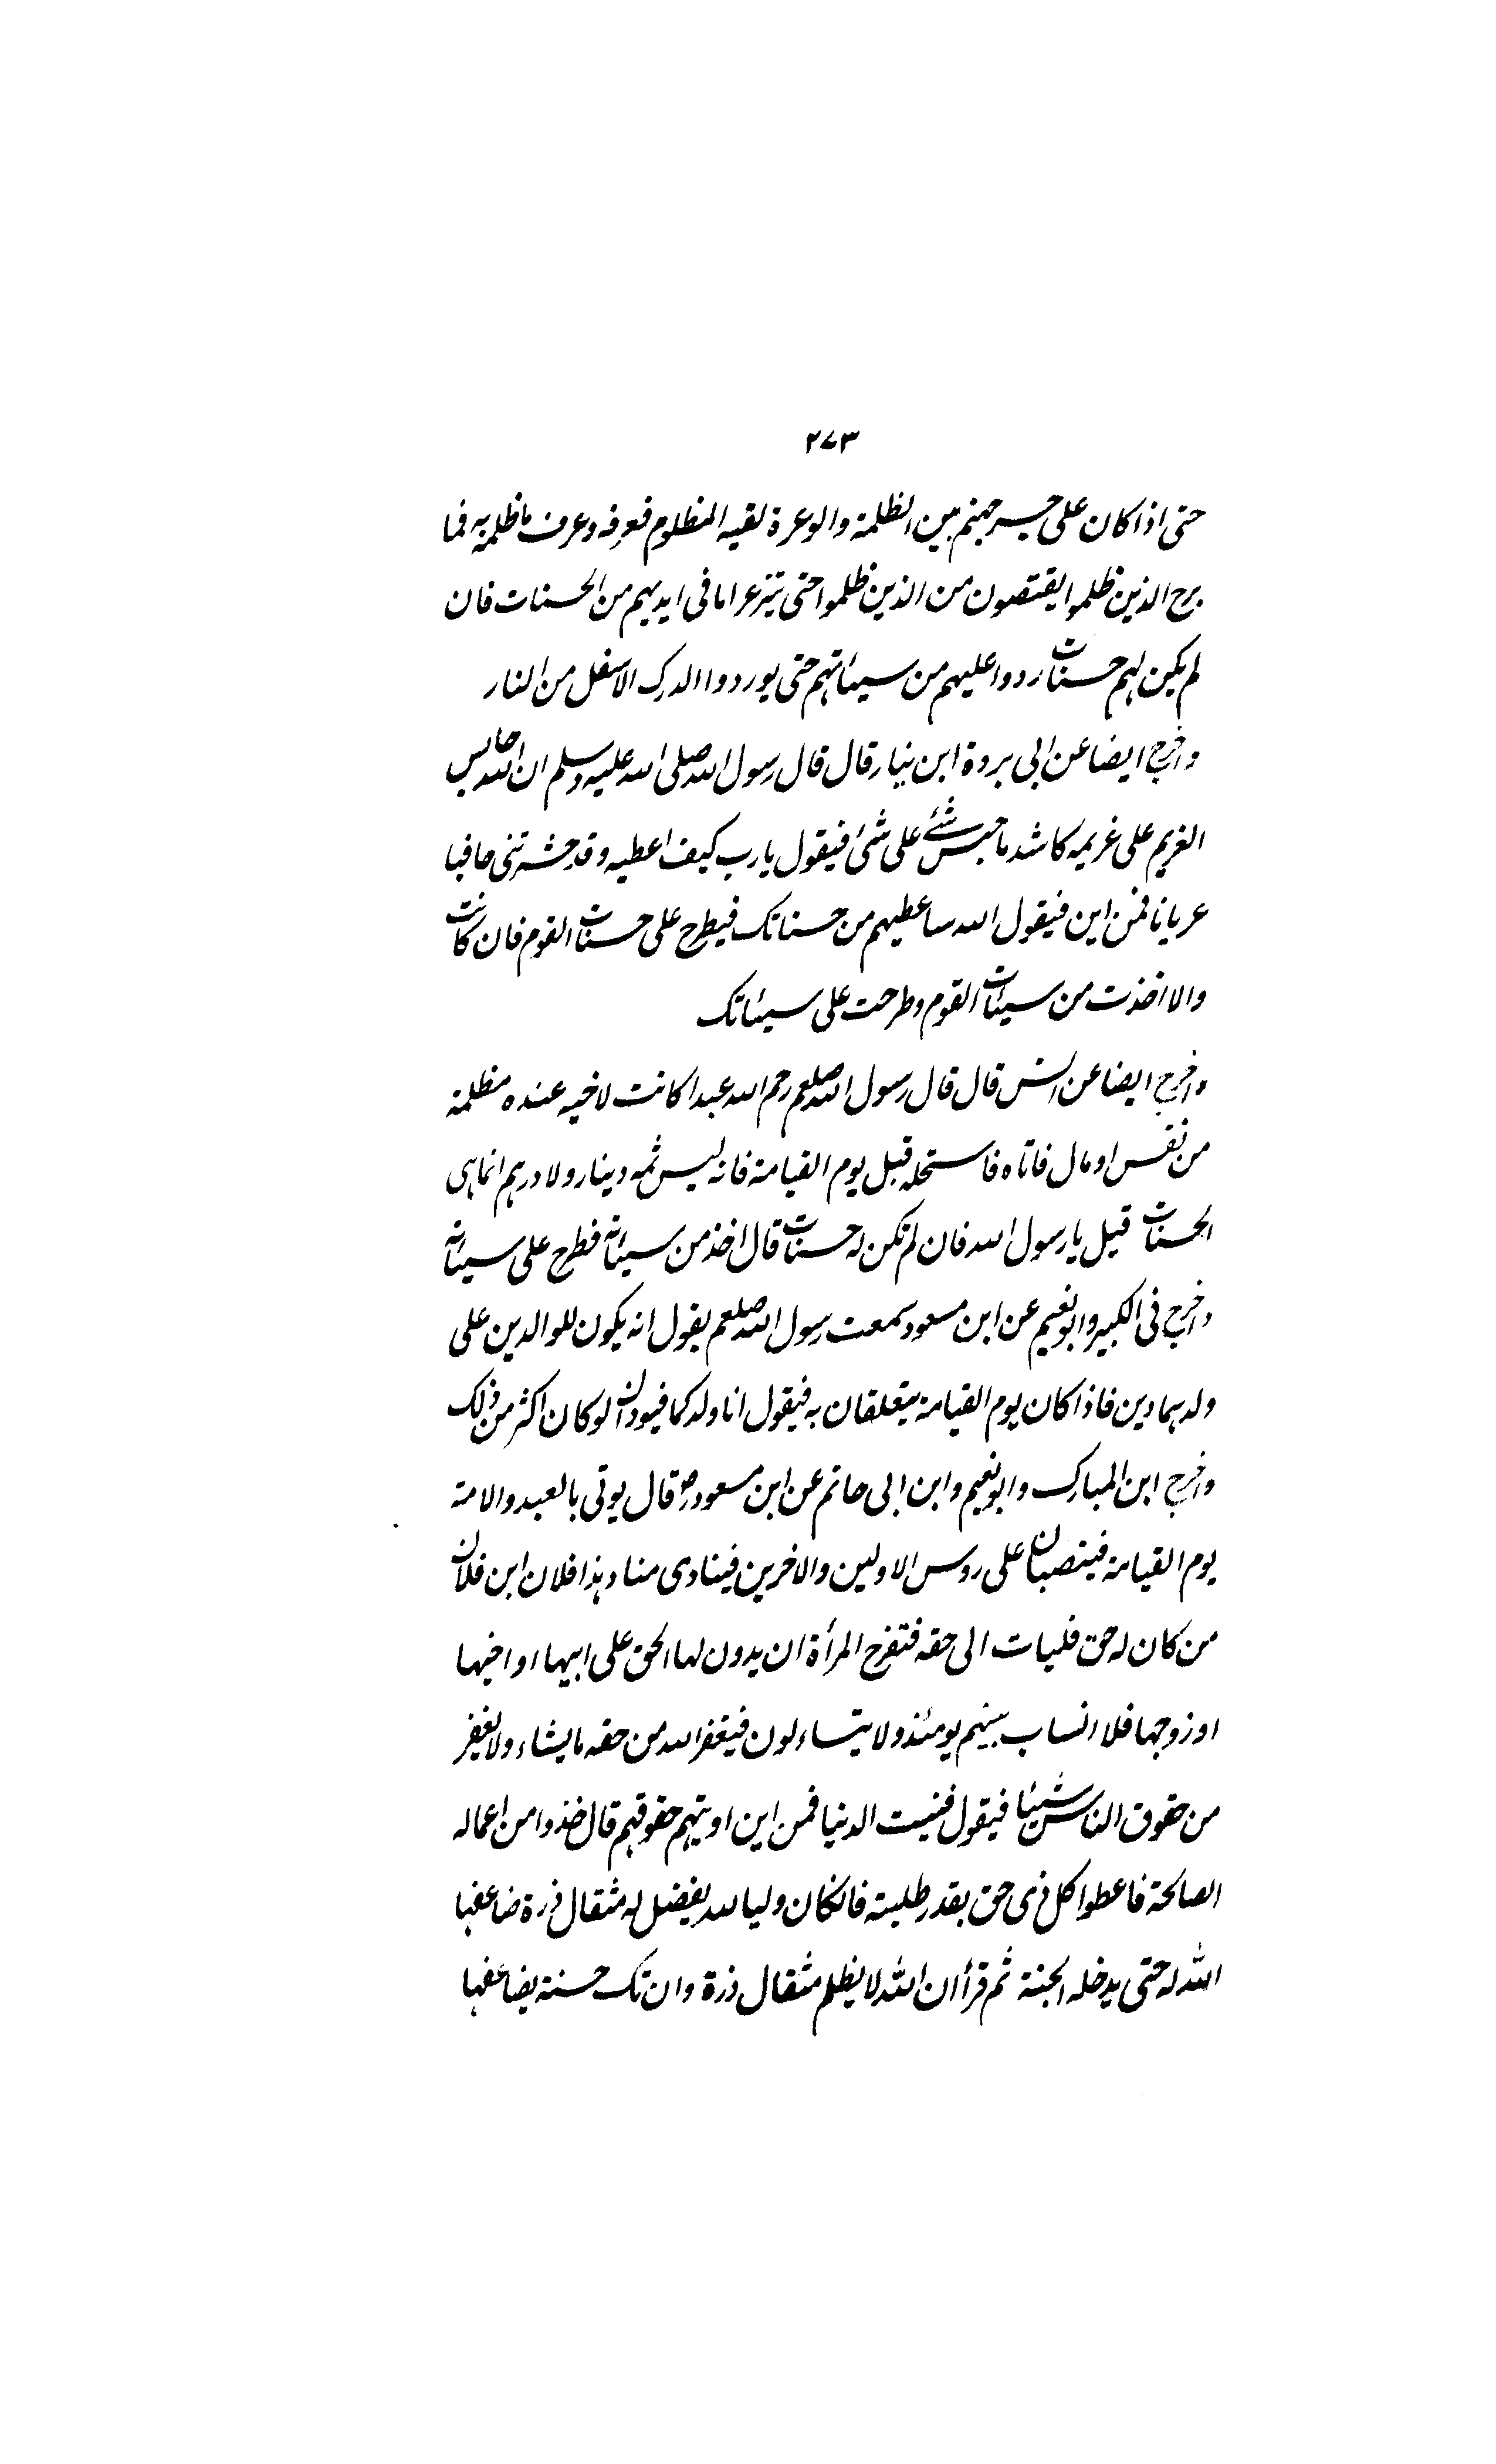 ۲۷۳
حتی اذا کان علی جسر جهنم بین الظلمة والوعرة لقیه المظلوم فعرفه وعرف ما ظلمه به فما
برح الذین ظلموا یقتصون من الذین ظلموا حتی تنزعوا ما فی ایدیهم من الحسنات فان
لم یکن لهم حسنات ردوا علیهم من سیئاتهم حتی یوردوا الدرک الاسفل من النار
واخرج ایضا عن ابی بردة ابن نیار قال قال رسول الله صلی الله علیه وسلم ان الله حابس
الغریم علی غریمه کاشد ما حبس شئ علی شئ فیقول یا رب کیف اعطیه وقد حشرتنی حافیا
عریانا فمن این فیقول الله ساعطیهم من حسناتک فیطرح علی حسنات القوم فان کانت
والا اخذت من سیئات القوم وطرحت علی سیئاتک
واخرج ایضا عن انس قال قال رسول الله صلعم رحم الله عبدا کانت لاخیه عنده مظلمة
من نفس او مال فاتاه فاستحله قبل یوم القیامة فانه لیس ثمه دینار ولا درهم انما هی
الحسنات قیل یا رسول الله فان لم تکن له حسنات قال اخذ من سیئاته فطرح علی سیئاته
واخرج فی الکبیر وابو نعیم عن ابن مسعود سمعت رسول الله صلعم یقول انه یکون للوالدین علی
ولدهما دین فاذا کان یوم القیامة یتعلقان به فیقول انا ولدکما فیودان لو کان اکثر من ذلک
واخرج ابن المبارک وابو نعیم وابن ابی حاتم عن ابن مسعود رض قال یوتی بالعبد والامة
یوم القیامة فینصبان علی روس الاولین والاخرین فینادی مناد هذا فلان ابن فلان
من کان له حق فلیات الی حقه فتفرح المرأة ان یدون لها الحق علی ابیها او اخیها
او زوجها فلا انساب بینهم یومئذ ولا یتساءلون فیغفر الله من حقه ما یشاء ولا یغفر
من حقوق الناس شیئا فیقول فنیت الدنیا فمن این اوتیهم حقوقهم قال خذوا من اعماله
الصالحة فاعطوا کل ذی حق بقدر طلبته فانکان ولیا لله یفضل له مثقال ذرة ضاعفها
الله له حتی یدخله الجنة ثم قرأ ان الله لا یظلم مثقال ذرة وان تک حسنة یضاعفها